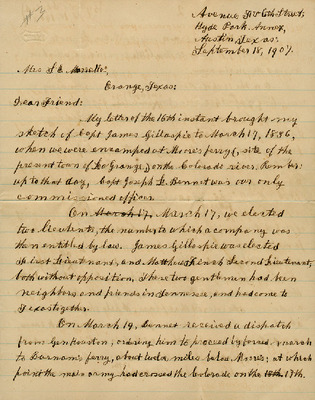 Avenue F & 56th Street,
Hyde Park Annex,
Austin, Texas.
September 18, 1907.
Mrs.
Orange, Texas:
Dear Friend:
My letter of the 16th instant brought my
sketch of Capt James Gillaspie to March 17, 1836,
when we were encamped at Moore's ferry (site of the
present town of La Grange,) on the Colorado river. Remember
up to that day, Capt Joseph L. Bennet was our only
commissioned officer.
On March 17, March 17, we elected
two lieutenants, the number to which a company was
then entitled by law. James Gillaspie was elected
First Lieutenant, and Matthew Finch Second Lieutenant,
both without opposition, These two gentlemen had been
neighbors and friends in Tennessee, and had come to
Texas together.
On March 19, Bennet received a dispatch
from Gen Houston, ordering him to proceed by forced march
to Burnam's ferry, about twelve miles below Moore's; at which
point the main army had crossed the Colorado on the 18th, 17th.